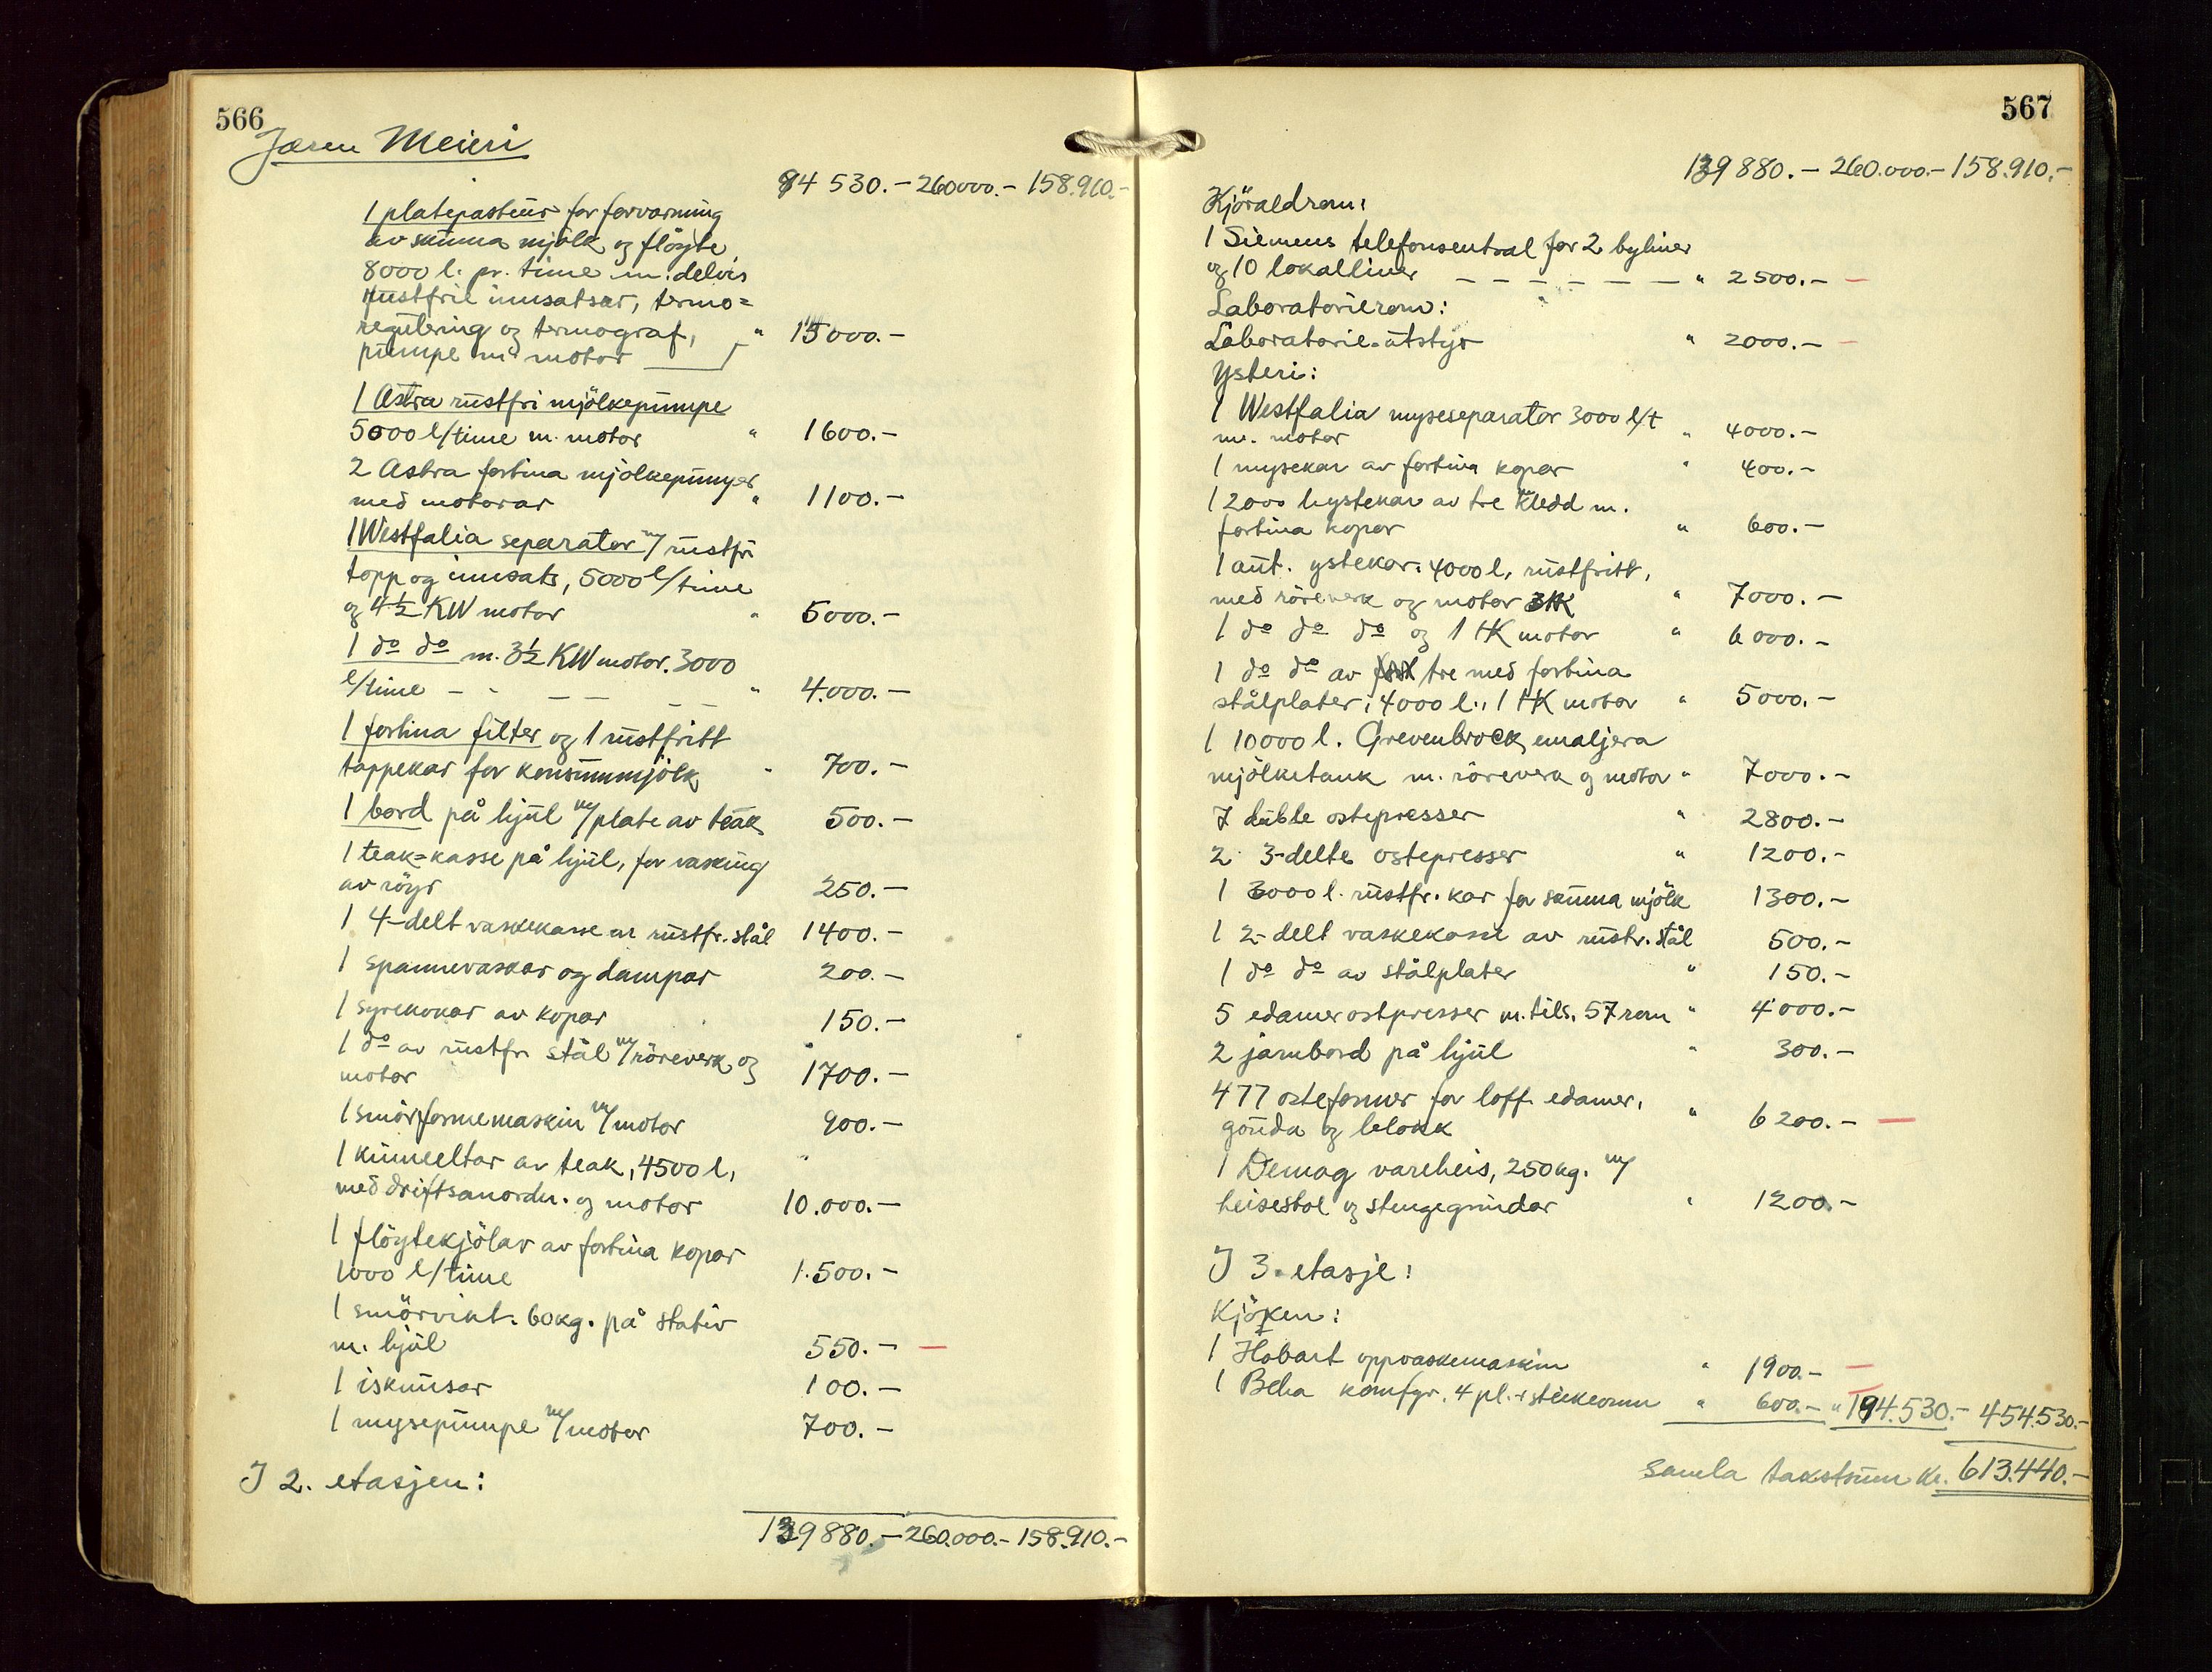 566
Jæren Meieri
94 530.- 260000.- 158.910.-
1 platepasteur for forvarming
av skumma mjölk og flöyte
8000 l. pr. time m. delvis
rustfrie innsatsar, termo=
regulering og termograf, " 15000.-
pumpe m. motor
1 Astra rustfri mjölkepumpe
5000 l/time m. motor " 1600.-
2 Astra fortina mjölkepumper
med motorar " 1100.-
1 Westfalia separator m/ rustfri
topp og innsats, 5000 l/time
og 4½ KW motor " 5000.-
1 do do m. 3½ KW motor. 3000
l/time - - - - " 4.000.-
1 fortina filter og 1 rustfritt
tappekar for konsummjölk " 700.-
1 bord på hjul m/ plate av teak 500.-
1 teak=kasse på hjul, for vasking
av röyr 250.-
1 4-delt vaskekasse av rustfr. stål 1400.-
1 spannevaskar og dampar 200.-
1 syrekokar av kopar 150.-
1 do av rustfr. stål m/ röreverk og
motor 1700.-
1 smörformemaskin m/ motor 900.-
1 kinneeltar av teak, 4500 l, "
med driftsanordn. og motor 10.000.-
1 flöytekjölar av fortina kopar
1000 l/time 1.500.-
1 smörvikt. 60kg. på stativ
m. hjul 550.- -
1 isknusar 100.-
1 mysepumpe m/ motor 700.-
I 2. etasjen:
139880.- 260.000.- 158.910.-
567
139 880.- 260.000.- 158.910.-
Kjöraldrom:
1 Siemens telefonsentral for 2 byliner
og 10 lokalliner - - - - - - " 2500.- -
Laboratorierom:
Laboratorie-utstyr " 2000.- -
Ysteri:
1 Westfalia myseseparator 3000 l/t
m. motor " 4000.-
1 mysekar av fortina kopar " 400.-
1 2000 l ystekar av tre kledd m.
fortina kopar " 600.-
1 aut. ystekar. 4000 l, rustfritt,
med röreverk og motor 3 HK " 7000.-
1 do do do og 1 HK motor " 6000.-
1 do do av tre med fortina
stålplater, 4000 l., 1 HK motor " 5000.-
1 10000 l. Grevenbrock emaljera
mjölketank m. röreverk og motor " 7000.-
7 duble ostepresser " 2800.-
2 3-delte ostepresser " 1200.-
1 3000 l. rustfr. kar for skumma mjölk 1300.-
1 2-delt vaskekasse av rustr. stål 500.-
1 do do av stålplater " 150.-
5 edamerostpresser m. tils. 57 rom " 4000.-
2 jarnbord på hjul " 300.-
477 osteformer for loff. edamer,
gouda og blokk " 6200.- -
1 Demag vareheis, 250kg. m/
heisestol og stengegrindar " 1200.-
I 3. etasje:
Kjöken:
1 Hobart oppvaskemaskin " 1900.- -
1 Beha komfyr. 4 pl. + steikeomn " 600.- " 194.530.- 454.530.-
Samla takstsum kr. 613.440.-